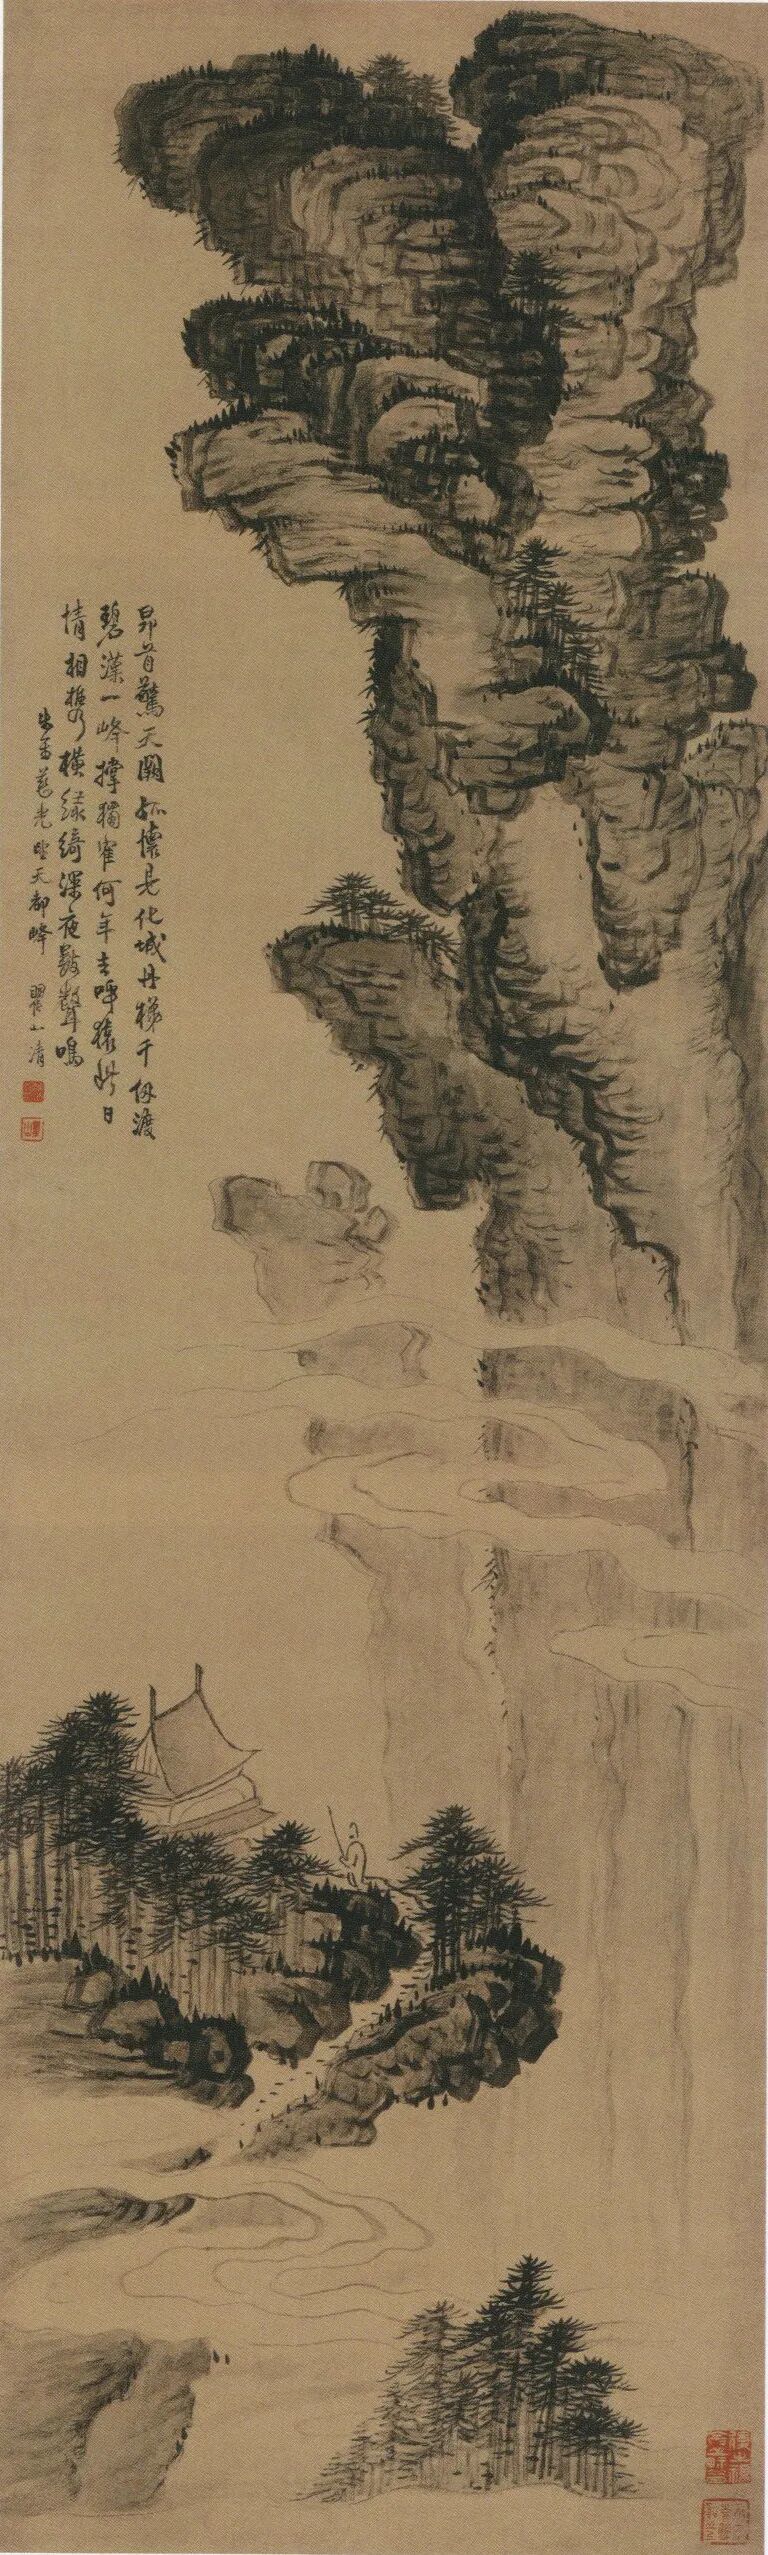 昂首驚天闕孤懷是化城丹梯千仞渡
碧藻一峰撐獨寉何年去呼猿此日
情相攜橫綠綺深夜數聲鳴
天都峰 瞿山清